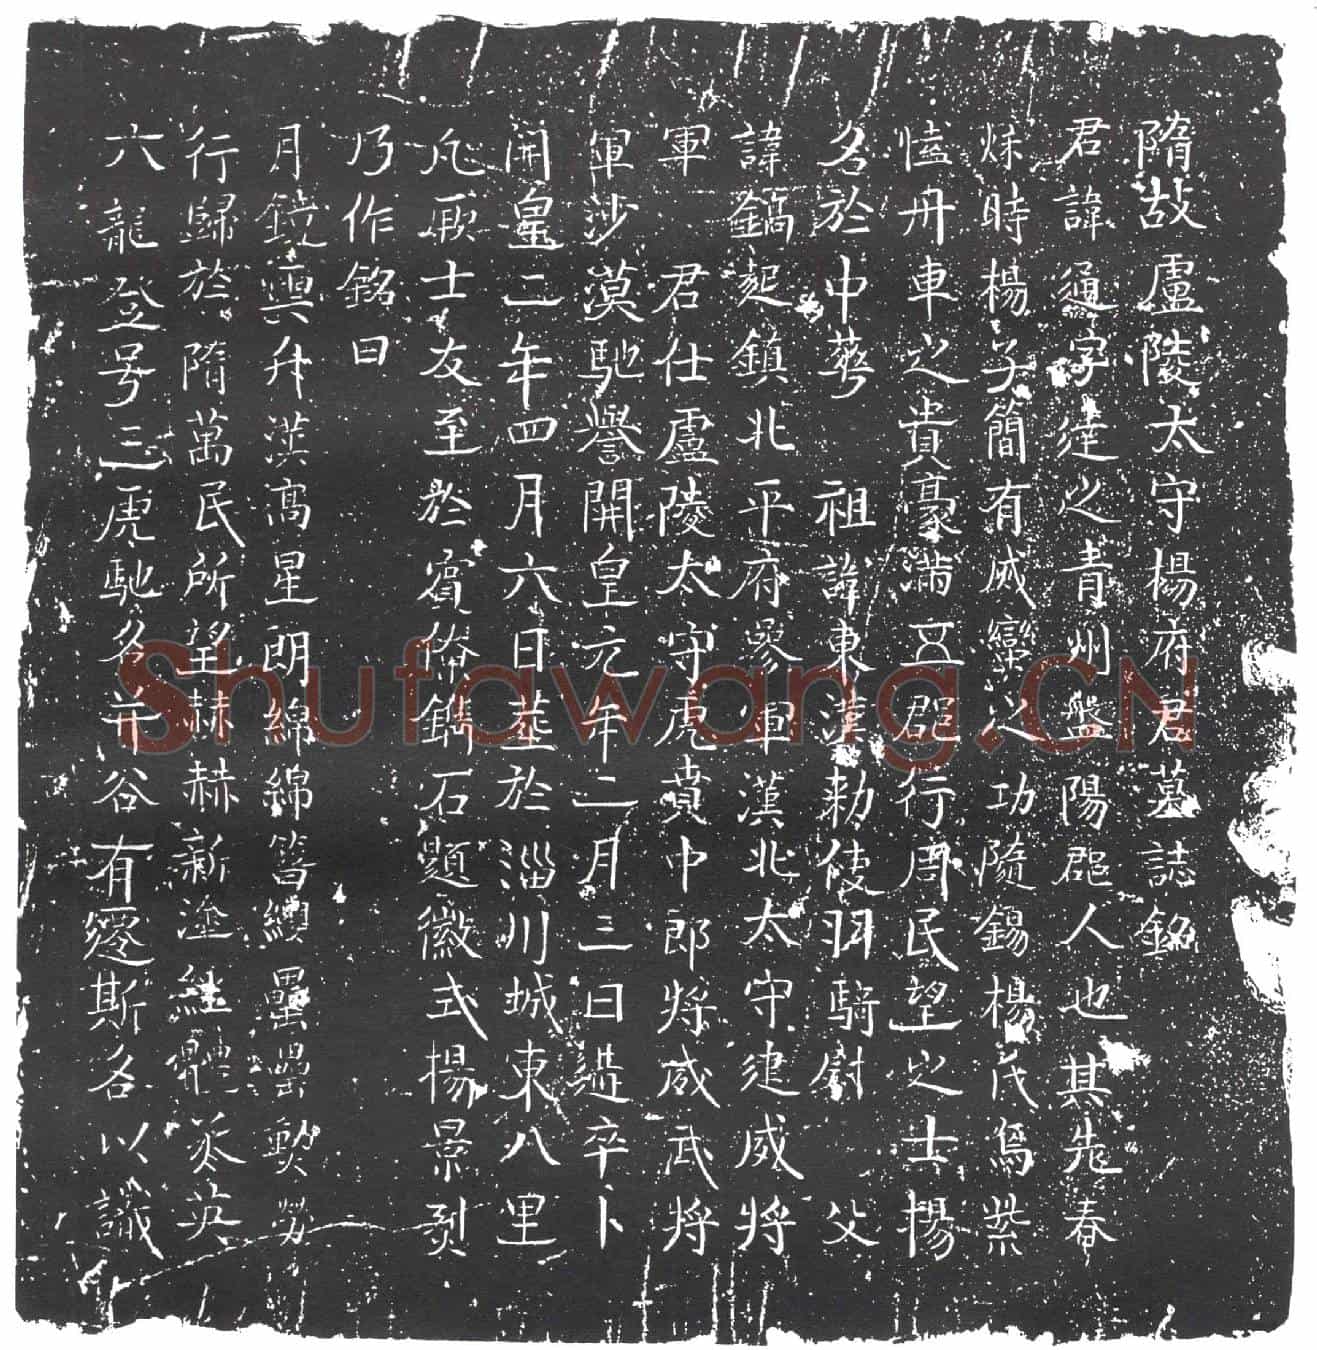 隋故盧陵太守楊府君墓誌銘
君諱通字達之青州盤陽郡人也其先春
秌時楊子簡有威蠻之功隨錫楊氏焉紫
蓋丹車之貴豪滿五郡行周民望之士揚
名於中華 祖諱東漢勑使羽騎尉 父
諱鎬起鎮北平府參軍漢北太守建威將
軍 君仕盧陵太守虎賁中郎將威武將
軍沙漠馳譽開皇元年二月三日薨卒卜
開皇二年四月六日塟於淄川城東八里
凡厥士友至於賓僚鐫石題徽式揚景烈
乃作銘曰
月鏡更升漢高星朗綿綿簪纓纍纍勳勞
行歸於隋萬民所望赫赫新塗經體丞英
六龍登号三虎馳名升谷有遷斯名以識
Shufawang.CN